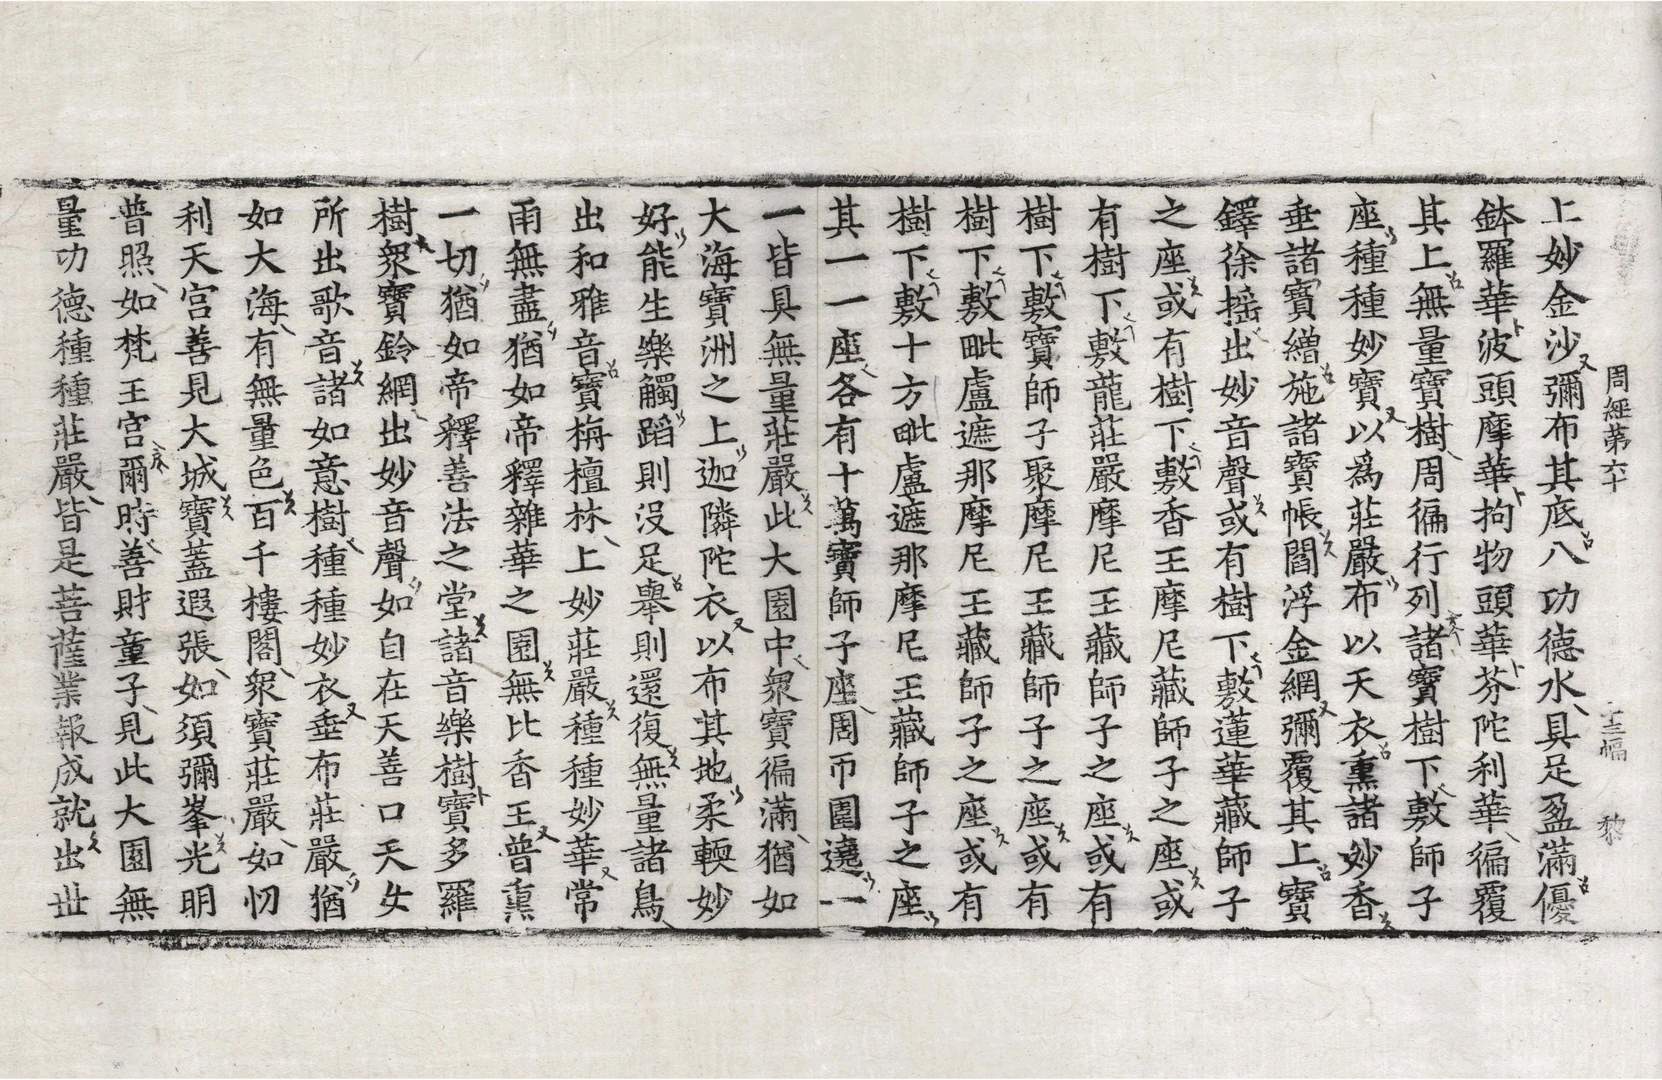 周經第六十 十三幅 黎
上妙金沙彌布其底八功德水具足盈滿優
鉢羅華波頭摩華拘物頭華芬陀利華徧覆
其上無量寶樹周徧行列諸寶樹下敷師子
座種種妙寶以爲莊嚴布以天衣熏諸妙香
垂諸寶繒施諸寶帳閻浮金網彌覆其上寶
鐸徐搖出妙音聲或有樹下敷蓮華藏師子
之座或有樹下敷香王摩尼藏師子之座或
有樹下敷龍莊嚴摩尼王藏師子之座或有
樹下敷寶師子聚摩尼王藏師子之座或有
樹下敷毗盧遮那摩尼王藏師子之座或有
樹下敷十方毗盧遮那摩尼王藏師子之座
其一一座各有十萬寶師子座周帀圍遶一
一皆具無量莊嚴此大園中衆寶徧滿猶如
大海寶洲之上迦隣陀衣以布其地柔輭妙
好能生樂觸蹈則没足舉則還復無量諸鳥
出和雅音寶栴檀林上妙莊嚴種種妙華常
雨無盡猶如帝釋雜華之園無比香王普熏
一切猶如帝釋善法之堂諸音樂樹寶多羅
樹衆寶鈴網出妙音聲如自在天善口天女
所出歌音諸如意樹種種妙衣垂布莊嚴猶
如大海有無量色百千樓閣衆寶莊嚴如忉
利天宮善見大城寶蓋遐張如須彌峯光明
普照如梵王宮爾時善財童子見此大園無
量功德種種莊嚴皆是菩薩業報成就出世